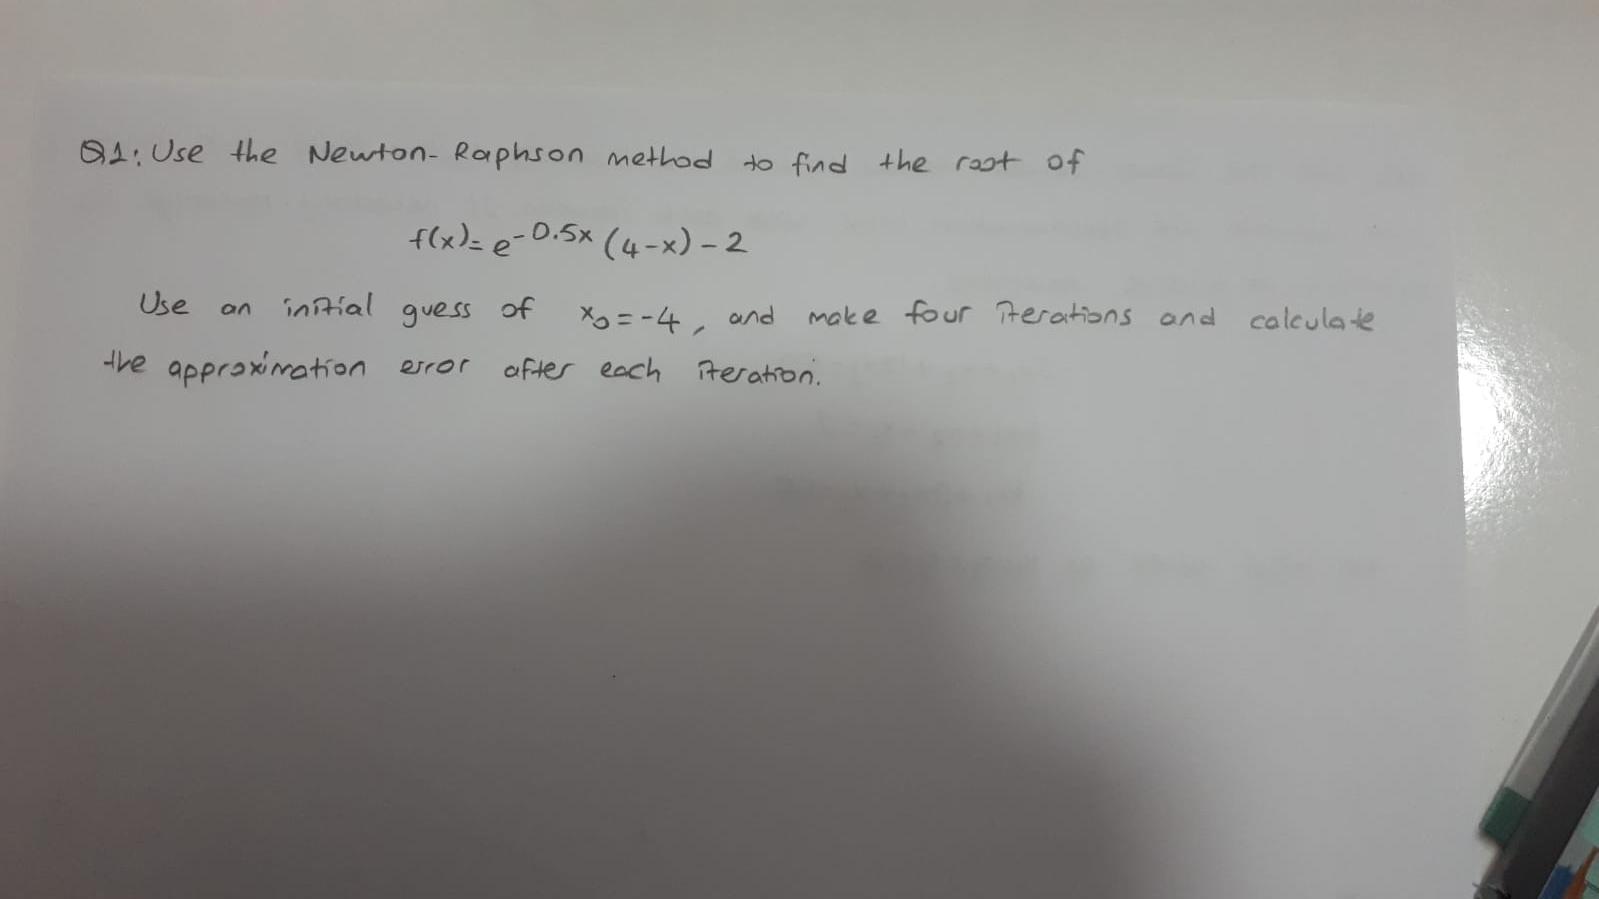 Q1: Use the Newton-Raphson method to find the root of
f(x)= e^-0.5x (4-x) - 2
Use an initial guess of x₀ = -4, and make four iterations and calculate
the approximation error after each iteration.